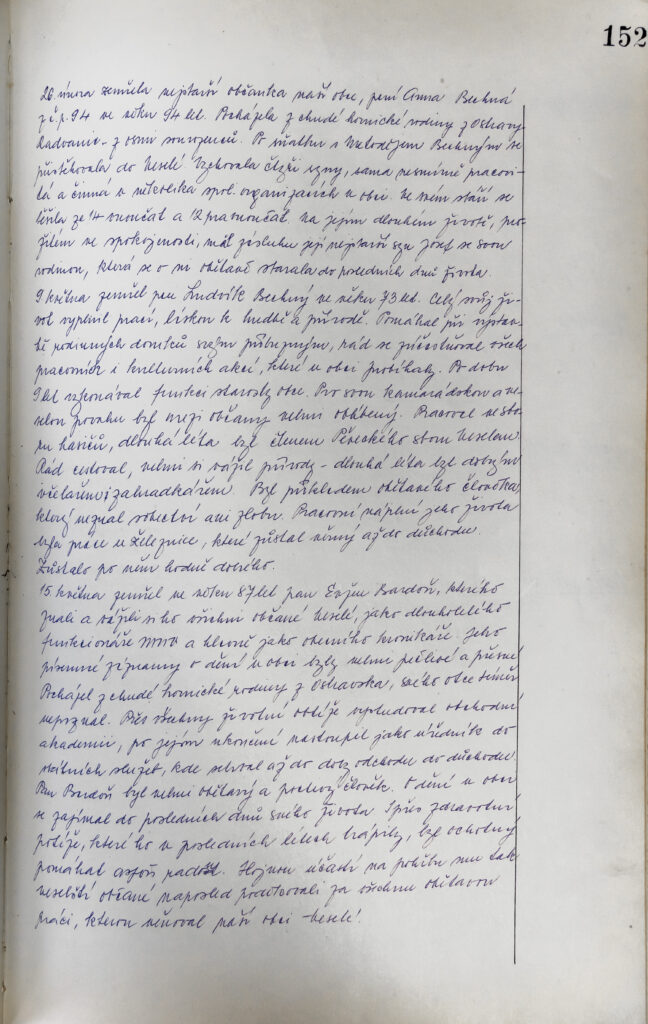 152
26. února zemřela nejstarší občanka naší obce, paní Anna Bechná
z č.p. 94 ve věku 94 let. Pocházela z chudé hornické rodiny z Ostravy
Radvanic - z osmi sourozenců. Po sňatku s Metodějem Bechným se
přistěhovala do Veselé. Vychovala čtyři syny, sama nesmírně pracovi-
tá a činná v několika spol. organizacích v obci. Ve svém stáří se
těšila ze 14 vnoučat a 12 pravnoučat. Na jejím dlouhém životě, pro-
žitém ve spokojenosti, měl zásluhu její nejstarší syn Josef se svou
rodinou, která se o ni obětavě starala do posledních dnů života.
9. května zemřel pan Ludvík Bechný ve věku 73 let. Celý svůj ži-
vot vyplnil prací, láskou k hudbě a přírodě. Pomáhal při výstav-
bě rodinných domků svým příbuzným, rád se zúčastňoval všech
pracovních i kulturních akcí, které v obci probíhaly. Po dobu
9 let vykonával funkci starosty obce. Pro svou kamarádskou a ve-
selou povahu byl mezi občany velmi oblíbený. Pracoval ve sbo-
ru hasičů, dlouhá léta byl členem Pěveckého sboru Veselan.
Rád cestoval, velmi si vážil přírody - dlouhá léta byl dobrým
včelařem i zahrádkářem. Byl příkladem obětavého člověka,
který neznal sobectví ani zlobu. Pracovní náplní jeho života
byla práce u železnice, které zůstal věrný až do důchodu.
Zůstalo po něm hodně dobrého.
15. května zemřel ve věku 87 let pan Evžen Bardoň, kterého
znali a vážili si ho všichni občané Veselé, jako dlouholetého
funkcionáře MNV a hlavně jako obecního kronikáře. Jeho
písemné záznamy o dění v obci byly velmi pečlivé a přesné.
Pocházel z chudé hornické rodiny z Ostravska, svého otce téměř
nepoznal. Přes všechny životní obtíže vystudoval obchodní
akademii, po jejím ukončení nastoupil jako úředník do
státních služeb, kde setrval až do doby odchodu do důchodu.
Pan Bardoň byl velmi obětavý a poctivý člověk. O dění v obci
se zajímal do posledních dnů svého života. I přes zdravotní
potíže, které ho v posledních létech trápily, byl ochotný
pomáhat aspoň radou. Hojnou účastí na pohřbu mu tak
veselští občané naposled poděkovali za všechnu obětavou
práci, kterou věnoval naší obci - Veselé.